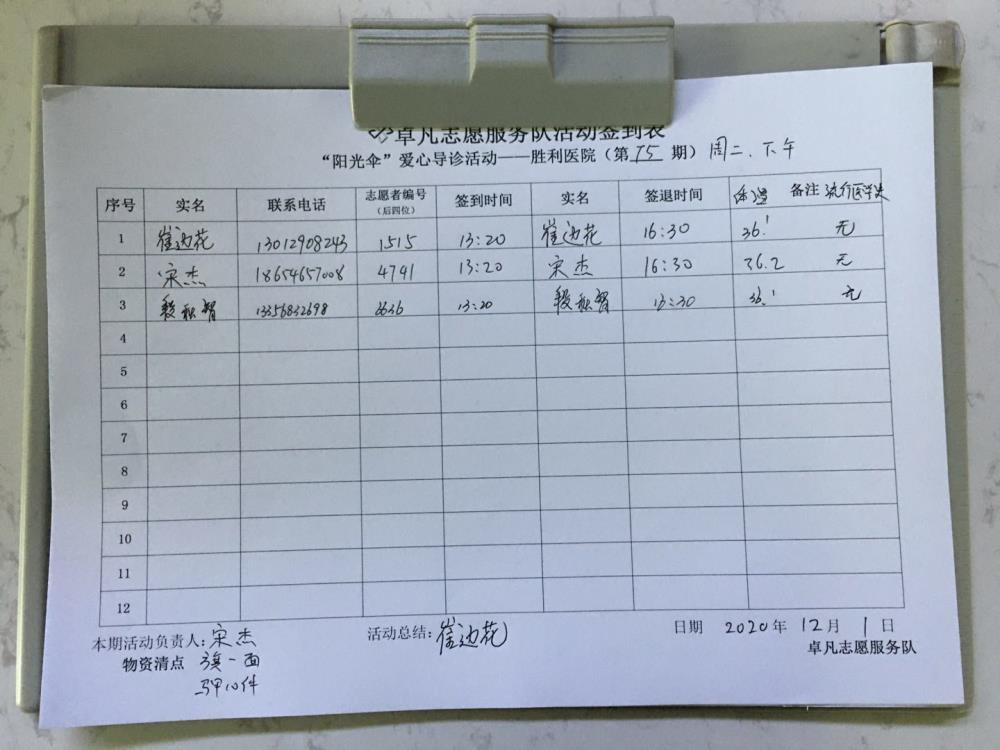 卓凡志愿服务队活动签到表
“阳光伞”爱心导诊活动——胜利医院（第15期）周二.下午
序号 实名 联系电话 志愿者编号（后四位） 签到时间 实名 签退时间 体温 备注 流行医学史
1 崔边花 13012908243 1515 13:20 崔边花 16:30 36.1 无
2 宋杰 18654657008 4791 13:20 宋杰 16:30 36.2 无
3 段秋智 13356832698 6636 13:20 段秋智 13:30 36.1 无
4
5
6
7
8
9
10
11
12
本期活动负责人：宋杰 活动总结：崔边花 日期 2020年12月1日
物资清点 旗一面 卓凡志愿服务队
马甲10件